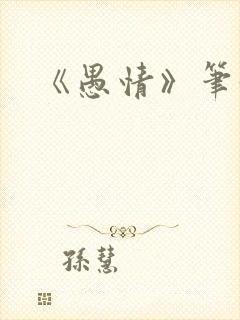 《愚情》筆
孫慧